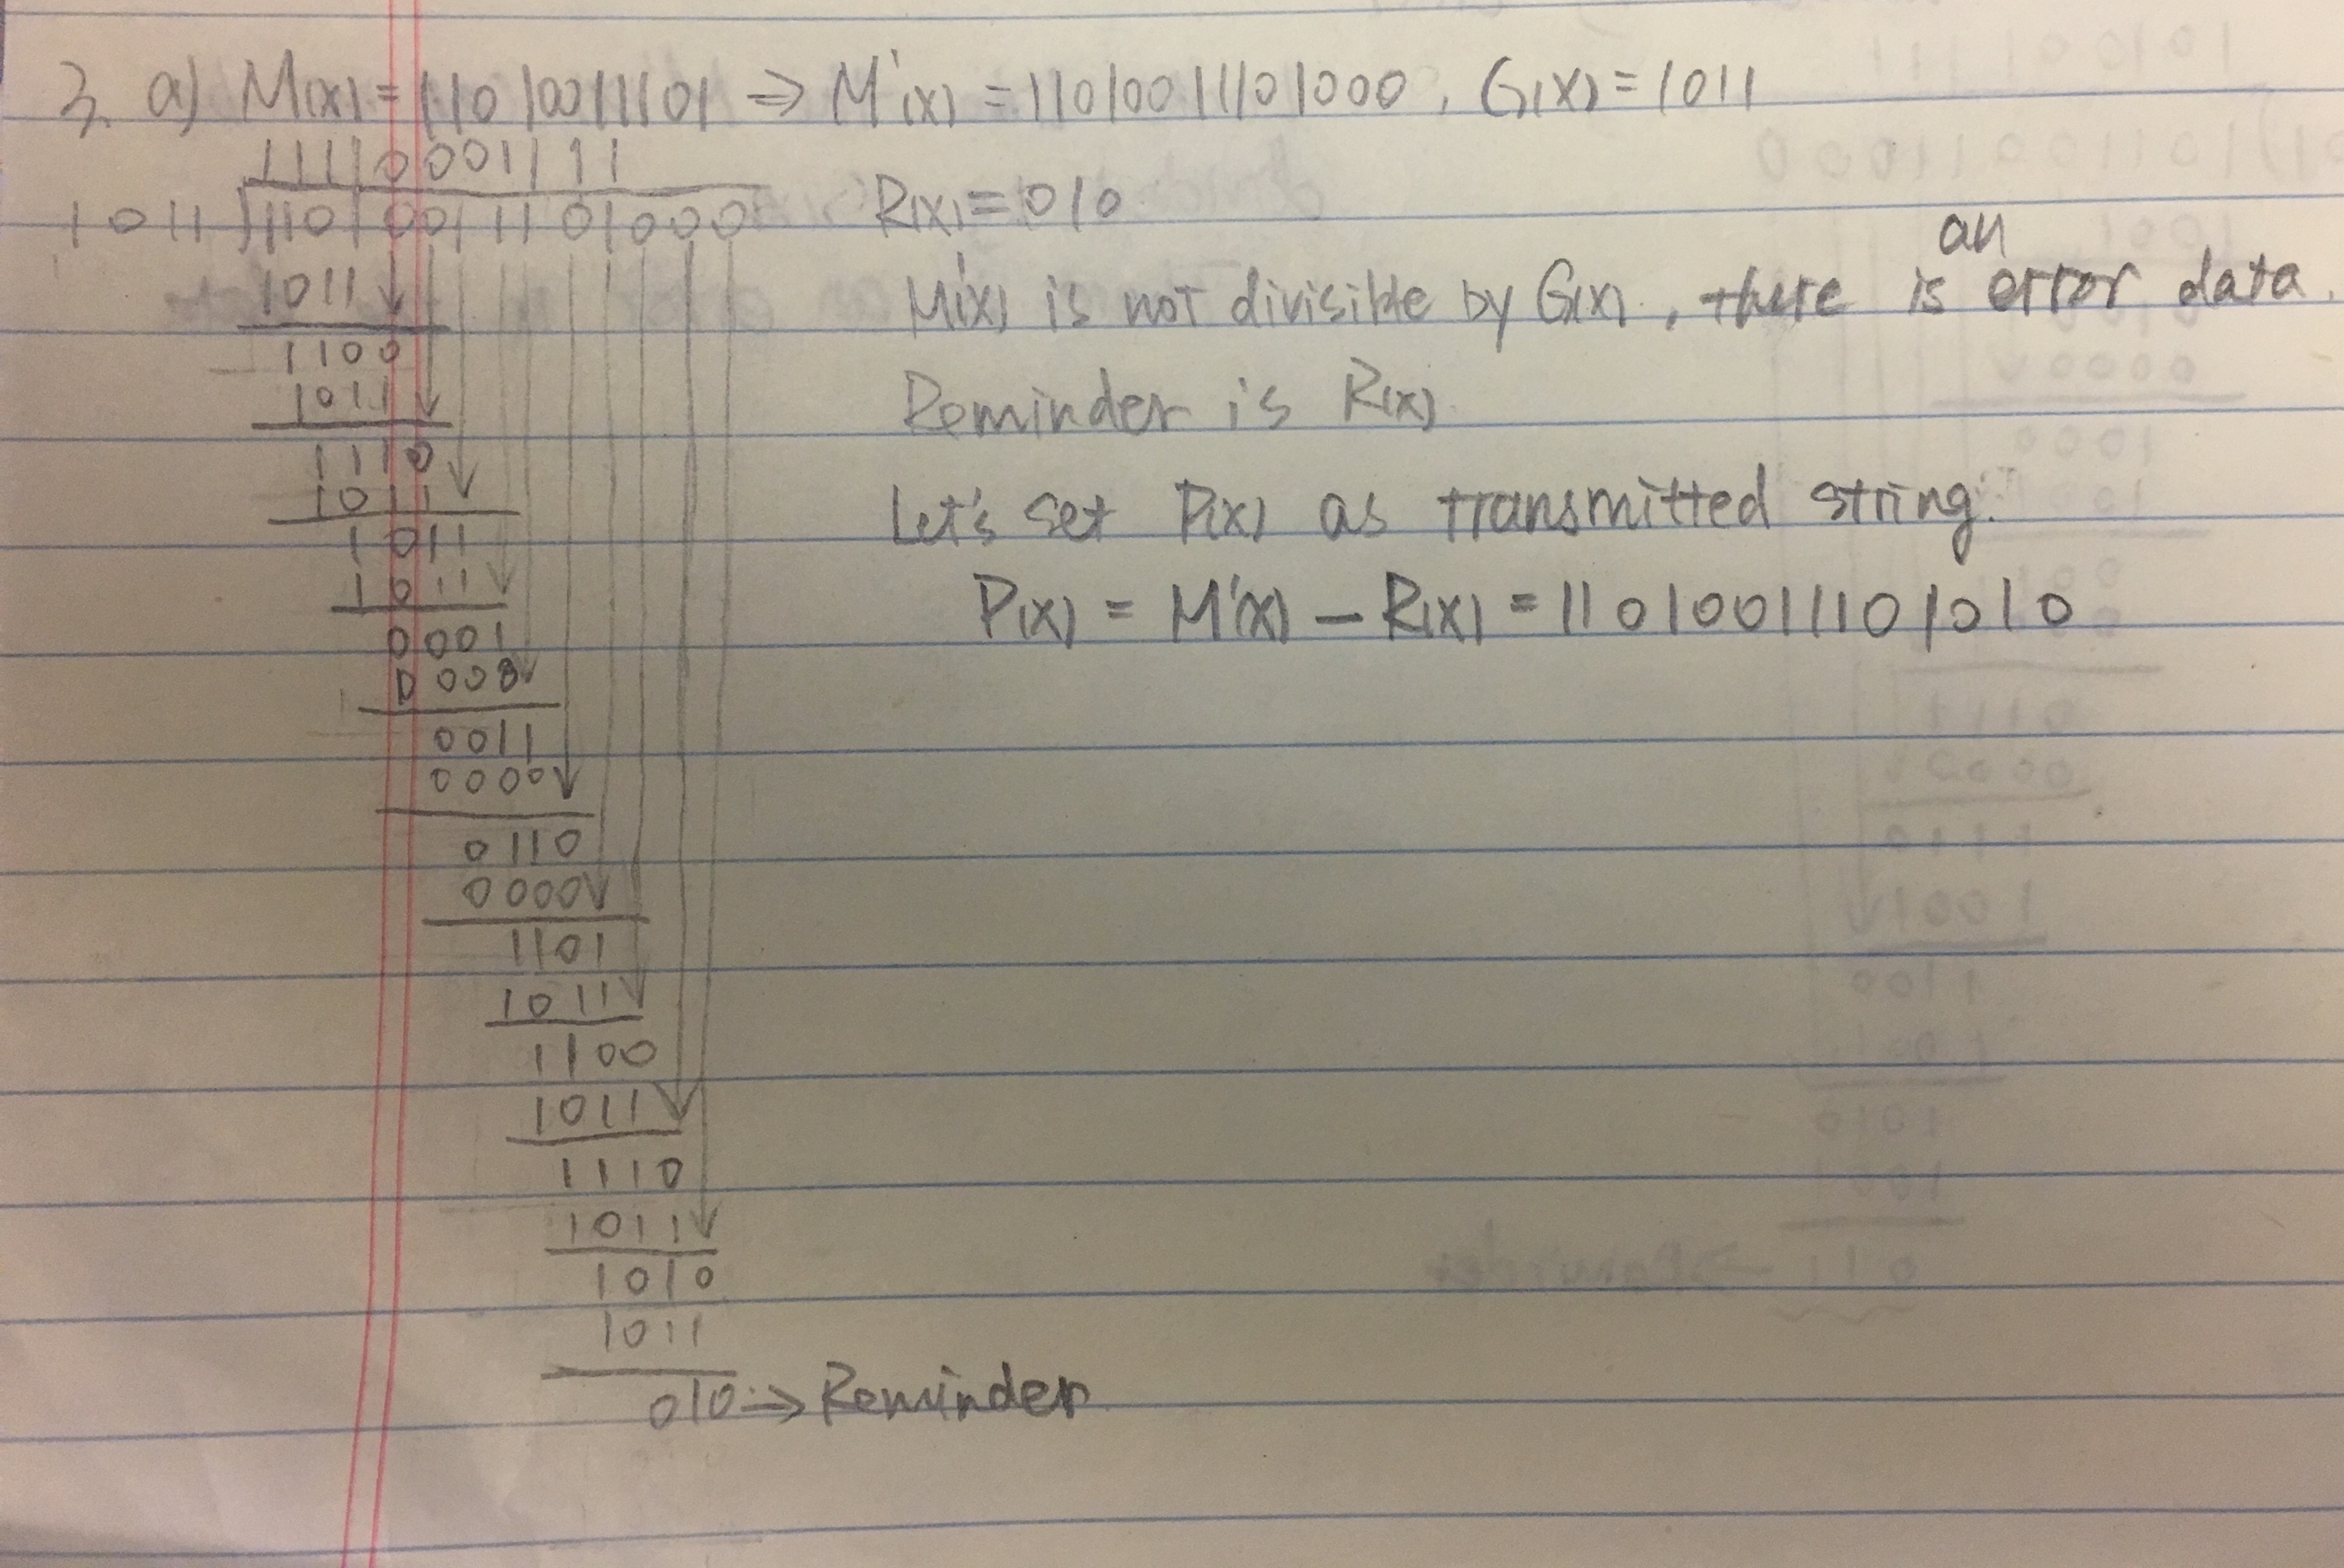 3. a) M(x) = 11010011101 ⇒ M'(x) = 11010011101000, G(x) = 1011
11110001111
1011 11010011101000
1011
1100
1011
1110
1011
1011
1011
0001
0000
0011
0000
0110
0000
1101
1011
1100
1011
1110
1011
1010
1011
010 → Reminder
R(x) = 010
M'(x) is not divisible by G(x), there is an error data.
Reminder is R(x)
Let's set P(x) as transmitted string.
P(x) = M'(x) - R(x) = 11010011101010